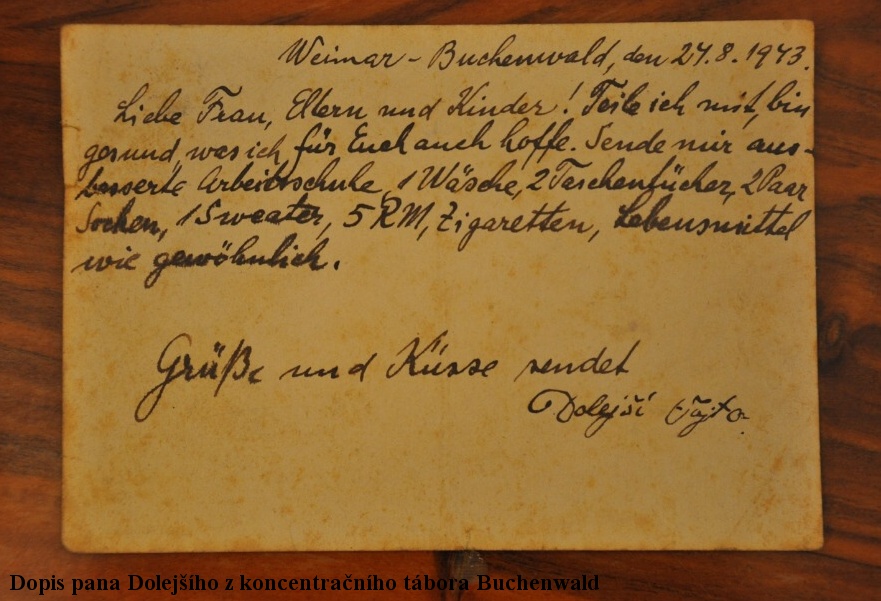 Weimar - Buchenwald, den 27.8.1943.
Liebe Frau, Eltern und Kinder! Teile ich mit, bin
gesund, was ich für Euch auch hoffe. Sende mir aus-
besserte Arbeitsschuhe, 1 Wäsche, 2 Taschentücher, 2 Paar
Socken, 1 Sweater, 5 RM, Zigaretten, Lebensmittel
wie gewöhnlich.
Grüße und Küsse sendet
Dolejší
Dopis pana Dolejšího z koncentračního tábora Buchenwald